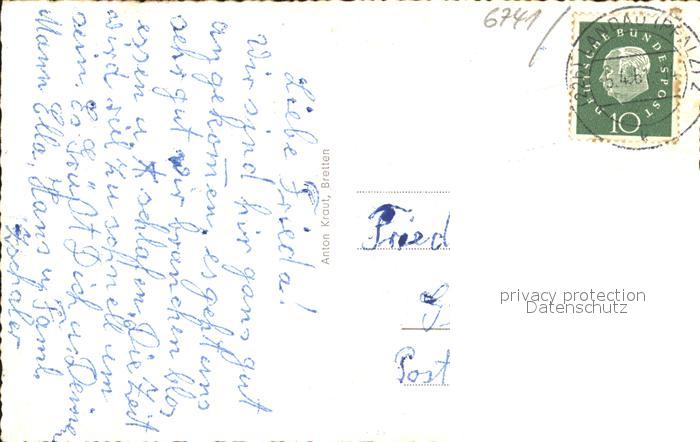 Liebe Frieda!
Wir sind hir gans gut
angekomen, es geht uns
sehr gut wir brauchen blos
essen u. schlafen, Die Zeit
wird viel zu schnell um
sein. Es Grüßt Dich u. Deinen
Mann Ella, Hans u. Faml.
Anton Kraut, Bretten
6741
DEUTSCHE BUNDESPOST
10
LANDAU (PFALZ) 2
Fried
G
Post
privacy protection
Datenschutz